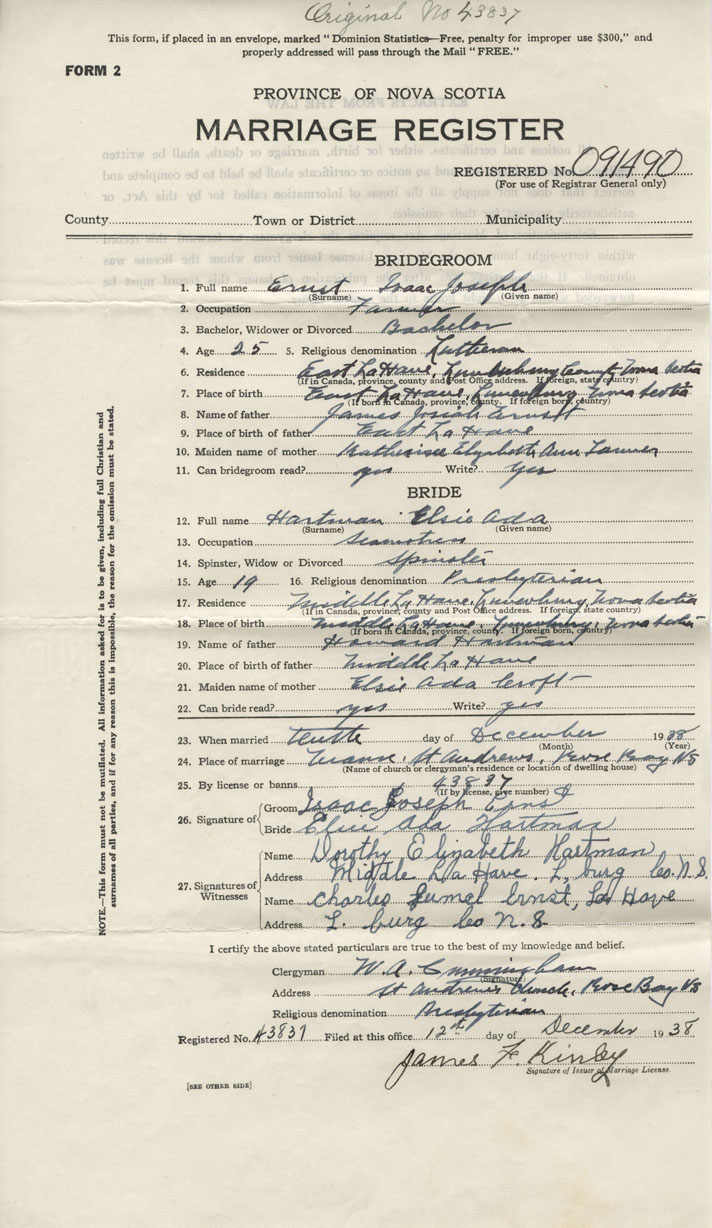 Original No 43837
This form, if placed in an envelope, marked "Dominion Statistics—Free, penalty for improper use $300," and
properly addressed will pass through the Mail "FREE."
FORM 2
PROVINCE OF NOVA SCOTIA
MARRIAGE REGISTER
REGISTERED No. 091490
(For use of Registrar General only)
County Town or District Municipality
BRIDEGROOM
1. Full name Ernst Isaac Joseph
(Surname) (Given name)
2. Occupation Farmer
3. Bachelor, Widower or Divorced Bachelor
4. Age 25 5. Religious denomination Lutheran
6. Residence East La Have, Lunenburg County Nova Scotia
(If in Canada, province, county and Post Office address. If foreign, state country)
7. Place of birth East La Have, Lunenburg Nova Scotia
(If born in Canada, province, county. If foreign born, country)
8. Name of father James Josiah Ernst
9. Place of birth of father East La Have
10. Maiden name of mother Katherine Elizabeth Ann
11. Can bridegroom read? yes Write? Yes
BRIDE
12. Full name Hartman Elsie Ada
(Surname) (Given name)
13. Occupation
14. Spinster, Widow or Divorced Spinster
15. Age 19 16. Religious denomination Presbyterian
17. Residence Middle La Have, Lunenburg, Nova Scotia
(If in Canada, province, county and Post Office address. If foreign, state country)
18. Place of birth Middle La Have, Lunenburg, Nova Scotia
(If born in Canada, province, county. If foreign born, country)
19. Name of father Howard Hartman
20. Place of birth of father Middle La Have
21. Maiden name of mother Elsie Ada Croft
22. Can bride read? yes Write? yes
23. When married Tenth day of December 1938
(Month) (Year)
24. Place of marriage Manse, St Andrews, Rose Bay NS
(Name of church or clergyman's residence or location of dwelling house)
25. By license or banns 43837
(If by license, give number)
26. Signature of Groom Isaac Joseph Ernst
Bride Elsie Ada Hartman
27. Signatures of Witnesses
Name Dorothy Elizabeth Hartman
Address Middle La Have. L. burg Co. N.S.
Name Charles Ernst, La Have
Address L. burg Co N.S.
I certify the above stated particulars are true to the best of my knowledge and belief.
Clergyman W. A. Cunningham
(Signature)
Address St Andrews Church, Rose Bay NS
Religious denomination Presbyterian
Registered No. 43837 Filed at this office 12th day of December 1938
James F. Kinley
Signature of Issuer of Marriage License
[SEE OTHER SIDE]
NOTE.—This form must not be mutilated. All information asked for is to be given, including full Christian and
surnames of all parties, and if for any reason this is impossible, the reason for the omission must be stated.